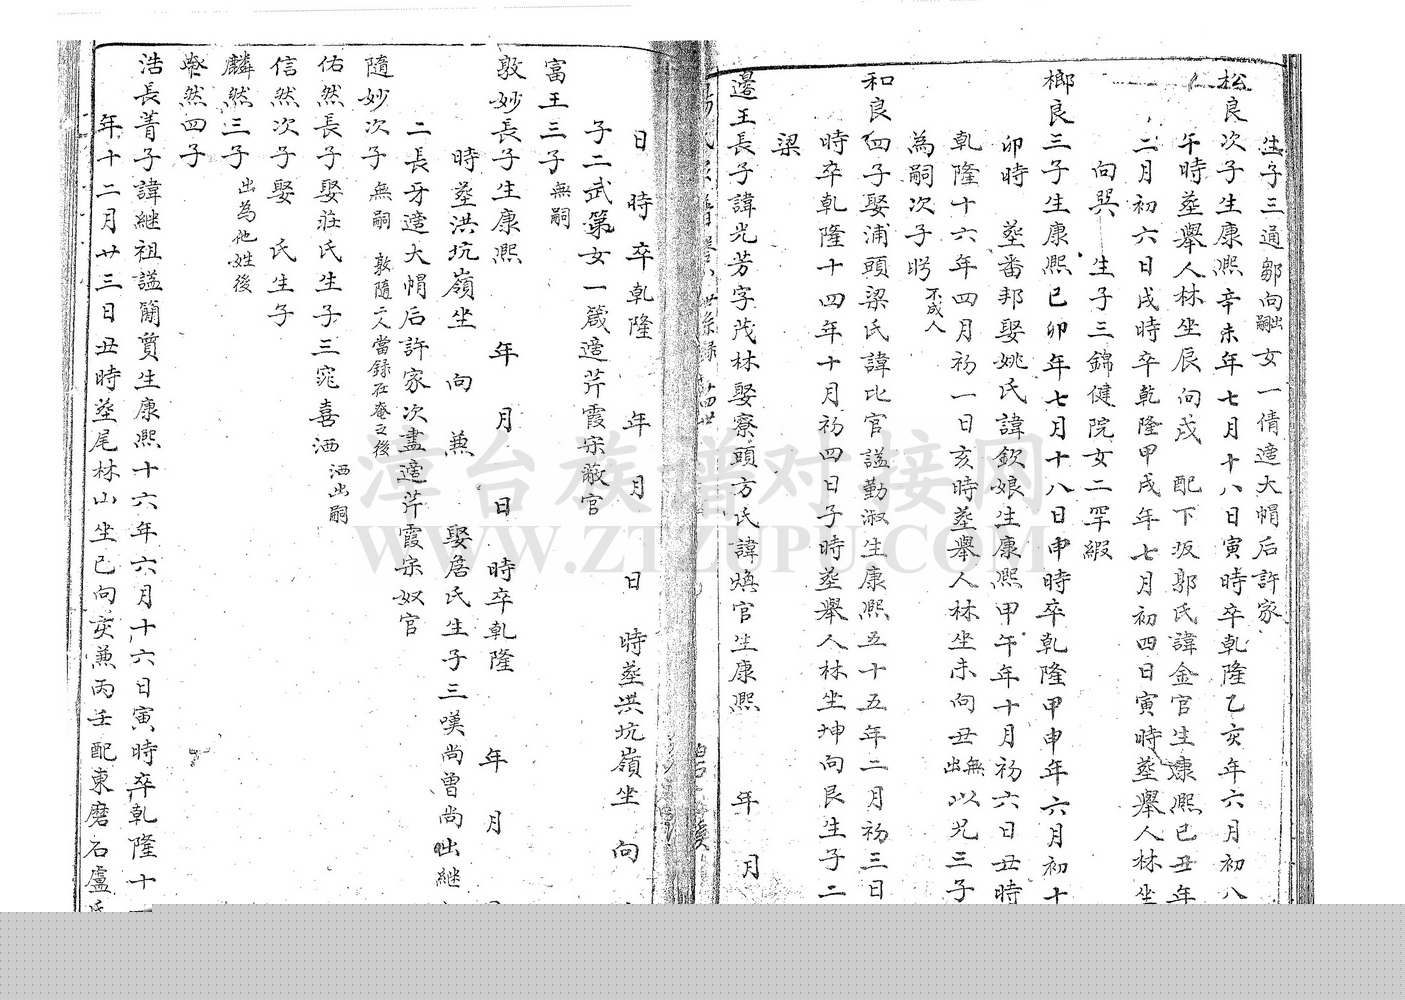 生子三通鄒向出嗣女一倩適大帽后許家
松良次子生康熙辛未年七月十八日寅時卒乾隆乙亥年六月初八
午時葬舉人林坐辰向戌 配下坂郭氏諱金官生康熙己丑年
二月初六日戌時卒乾隆甲戌年七月初四日寅時葬舉人林坐
向巽 生子三錦健院女二罕緞
榔良三子生康熙己卯年七月十八日申時卒乾隆甲申年六月初十
卯時 葬番邦娶姚氏諱欽娘生康熙甲午年十月初六日丑時
乾隆十六年四月初一日亥時葬舉人林坐未向丑無出以兄三子
為嗣次子盻不成人
和良四子娶浦頭梁氏諱比官謚勤淑生康熙五十五年二月初三日
時卒乾隆十四年十月初四日子時葬舉人林坐坤向艮生子二
梁
邊王長子諱光芳字茂林娶寮頭方氏諱煥官生康熙 年 月
日 時卒乾隆 年 月 日 時葬洪坑嶺坐 向
子二武第女一箴適芹霞宗敵官
富王三子無嗣
敦妙長子生康熙 年 月 日 時卒乾隆 年 月
時葬洪坑嶺坐 向 兼 娶詹氏生子三嘆尚曾尚出継
二長牙適大帽后許家次盡適芹霞宗奴官
隨妙次子無嗣 敦隨二人當録在奄之後
佑然長子娶莊氏生子三窕喜洒洒出嗣
信然次子娶 氏生子
麟然三子出為他姓後
然四子
浩長菁子諱継祖謚簡質生康熙十六年六月十六日寅時卒乾隆十
年十二月廿三日丑時葬尾林山坐巳向亥兼丙壬配東磨石盧氏
漳台族谱对接网
WWW.ZTZUPU.COM